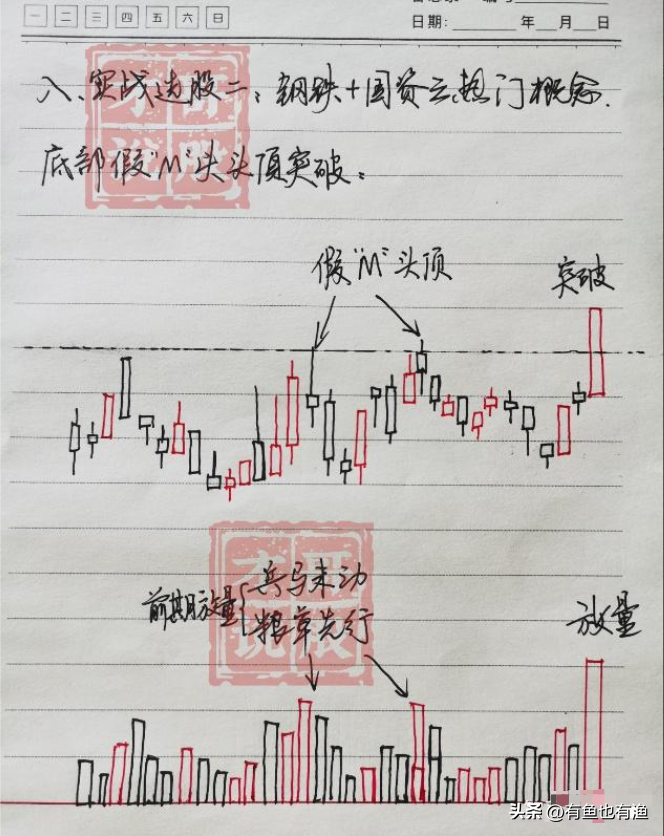 一 二 三 四 五 六 日
日期: 年 月 日
八、实战选股二：钢铁+国资云热门概念.
底部假"M"头头顶突破：
假"M"头顶
突破
前期放量
兵马未动
粮草先行
放量
头条 @有鱼也有渔